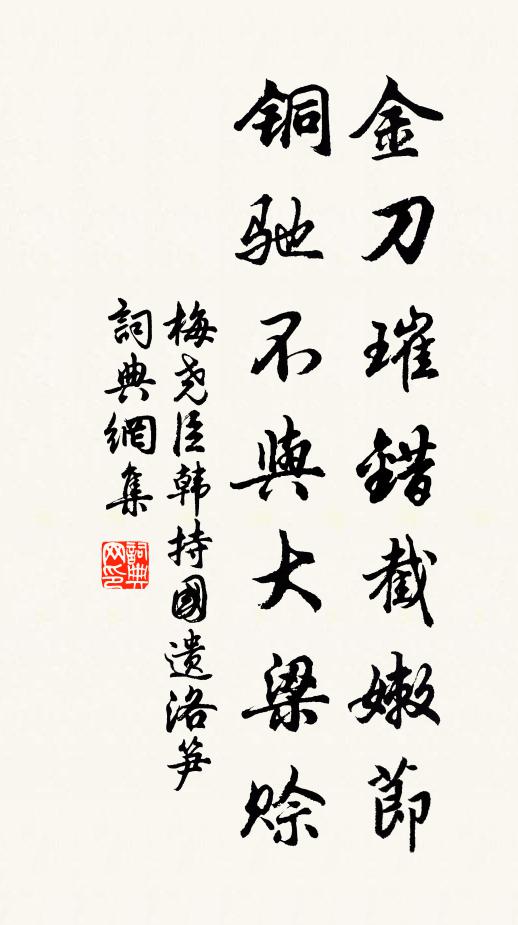 金刀璀錯截嫩節
铜驰不與大梁赊
梅尧臣韩持國遗洛笋
詞典網集
詞典网印